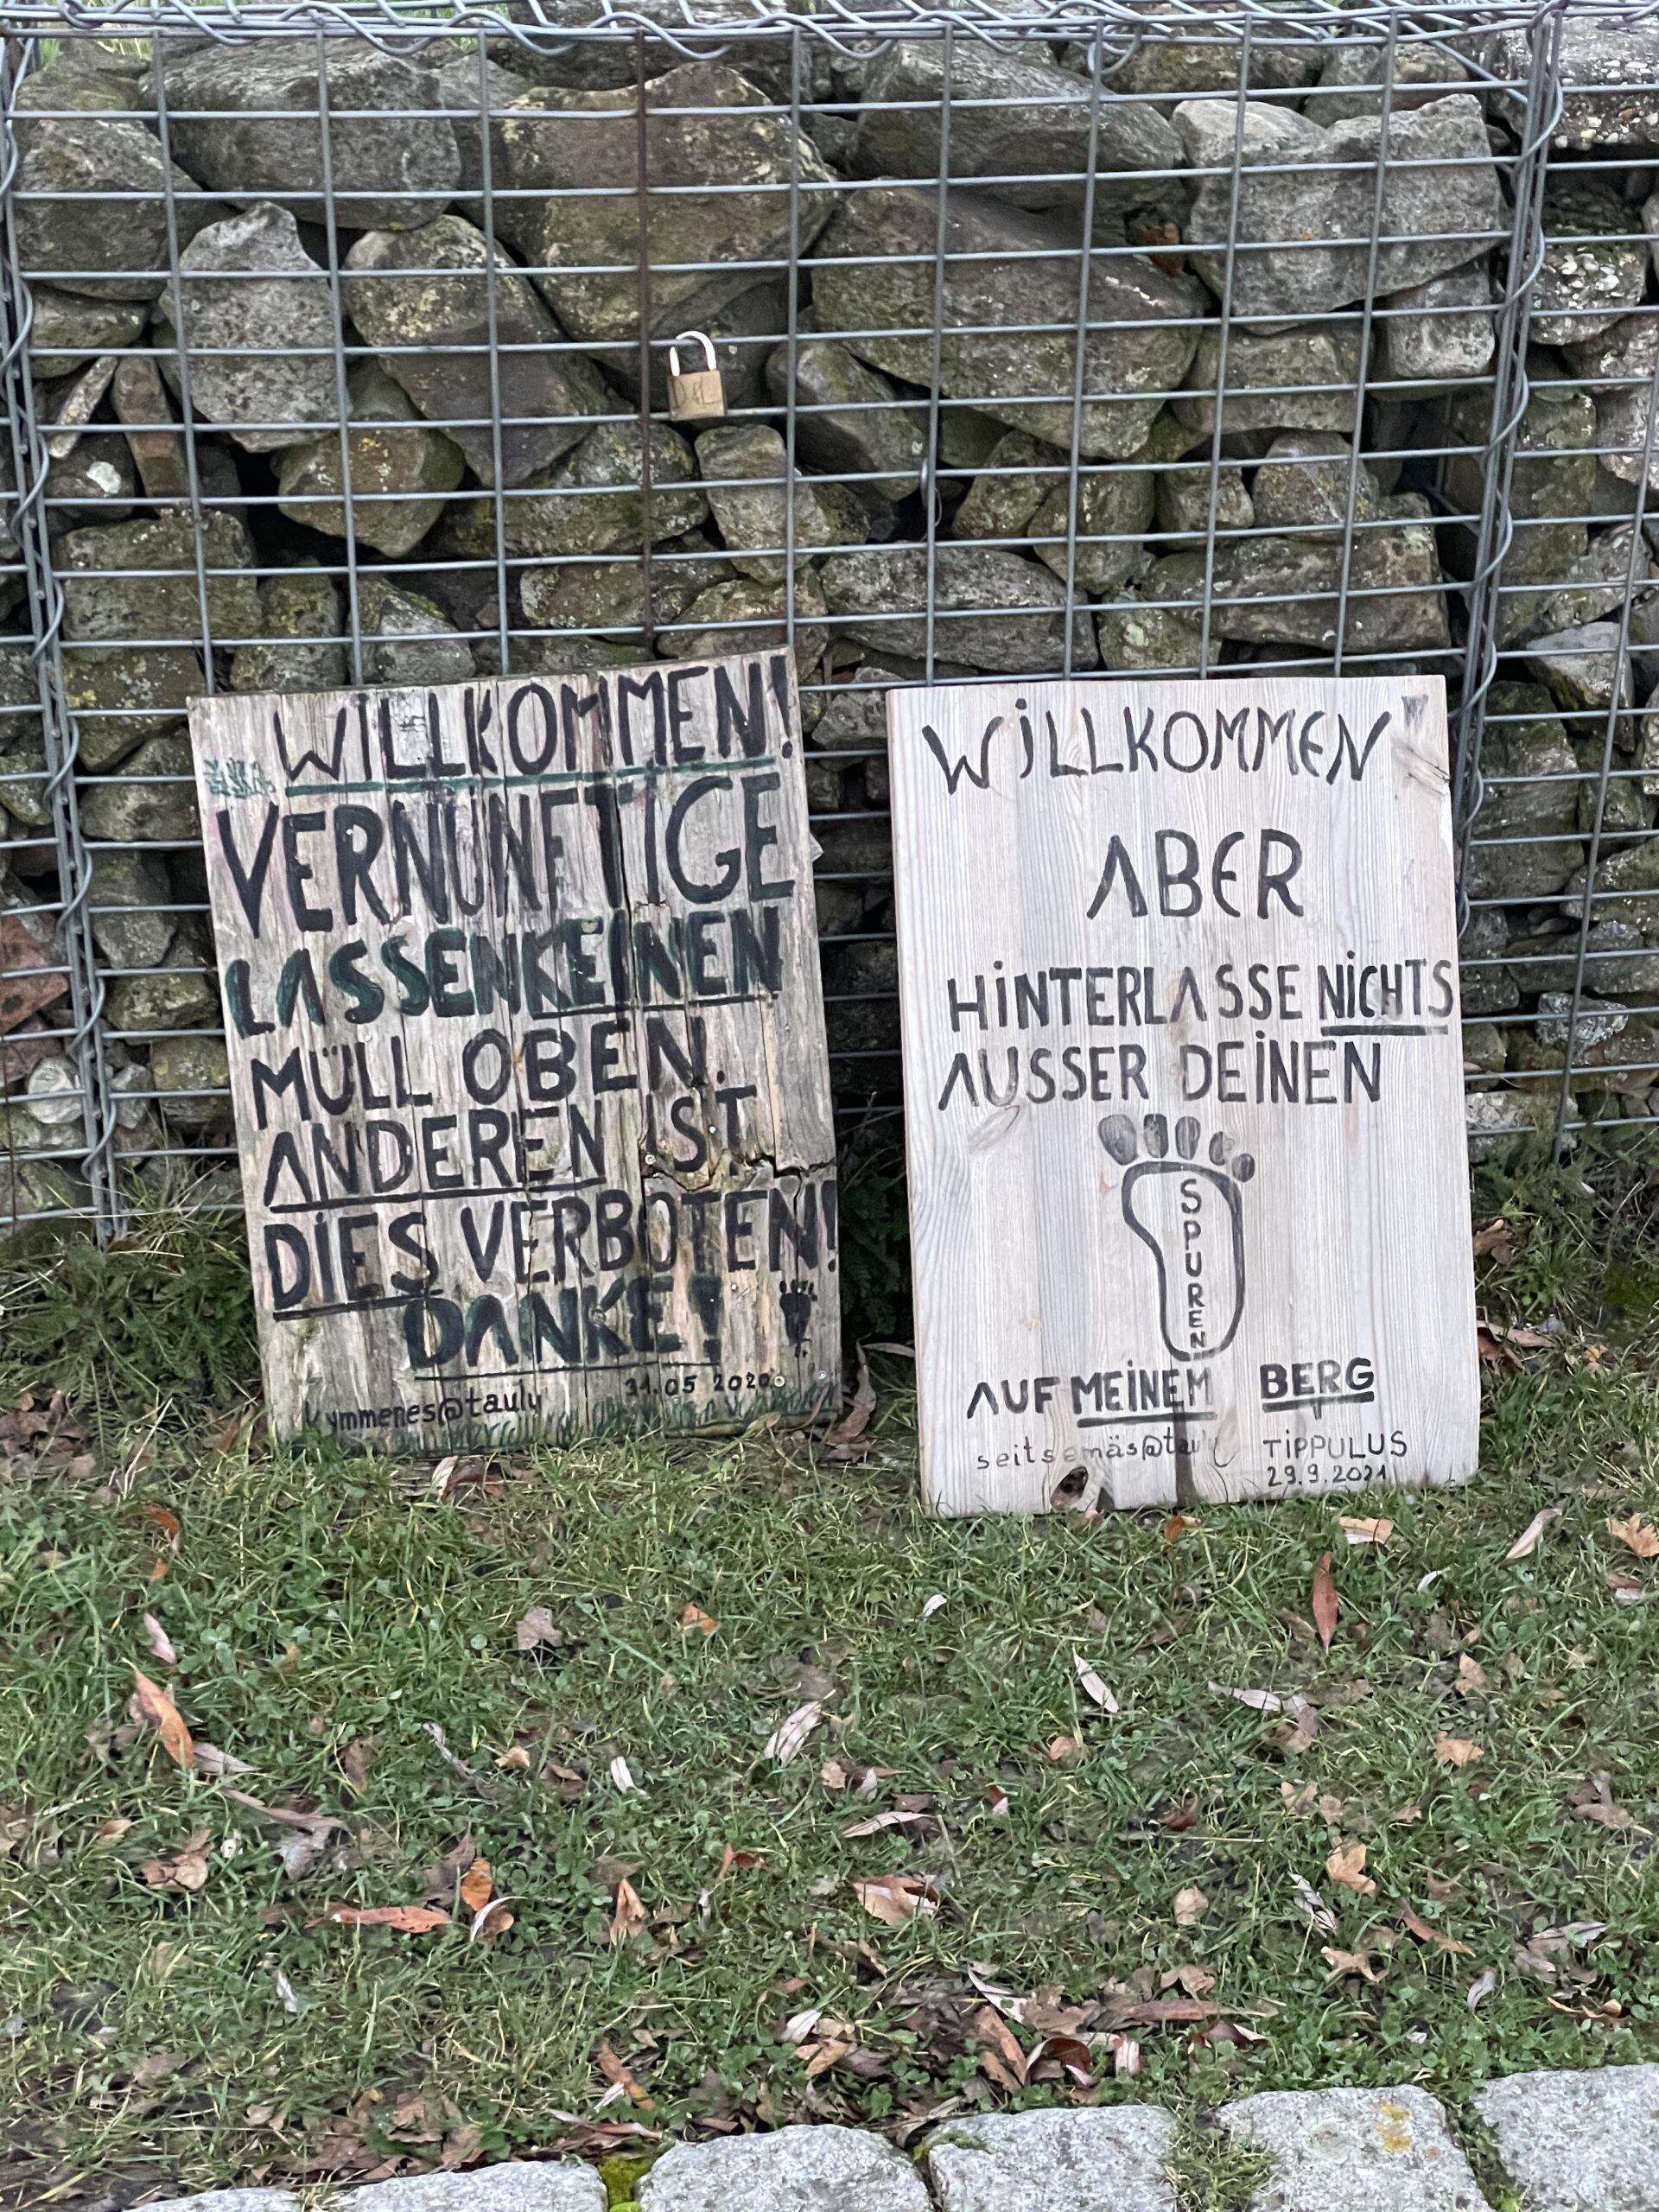 WILLKOMMEN!
VERNÜNFTIGE
LASSEN KEINEN
MÜLL OBEN.
ANDEREN IST
DIES VERBOTEN!
DANKE!
31.05 2020
kymmenes@tauly
WILLKOMMEN
ABER
HINTERLASSE NICHTS
AUSSER DEINEN
SPUREN
AUF MEINEM BERG
seitsemäs@tauly TIPPULUS
29.9.2021